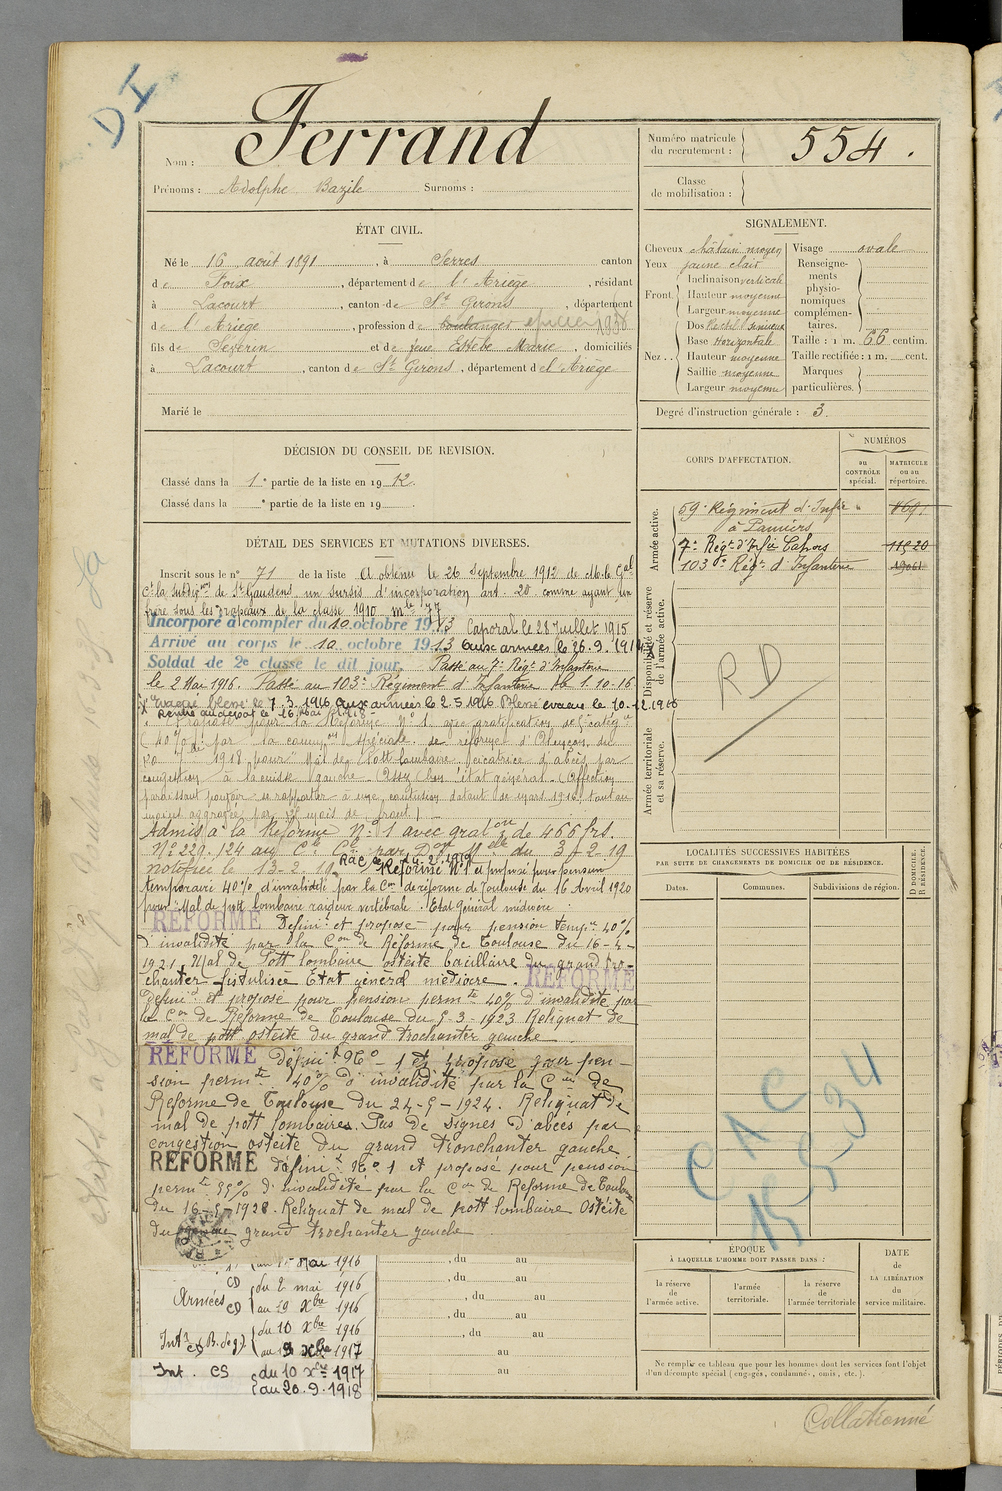 DI
Nom : Ferrand
Prénoms : Adolphe Bazile Surnoms :
Numéro matricule du recrutement : 554.
Classe de mobilisation :
ÉTAT CIVIL.
Né le 16 août 1891, à Serres canton
de Foix, département de l'Ariège, résidant
à Lacourt, canton de St Girons, département
de l'Ariège, profession de boulanger 1938
fils de Séverin et de feue Estebe Marie, domiciliés
à Lacourt, canton de St Girons, département de l'Ariège
Marié le
SIGNALEMENT.
Cheveux châtain moyen
Yeux jaune clair
Front. Inclinaison verticale
Hauteur moyenne
Largeur moyenne
Nez .. Dos Rectil. sinueux
Base Horizontale
Hauteur moyenne
Saillie moyenne
Largeur moyenne
Visage ovale
Renseignements physionomiques complémentaires.
Taille : 1 m. 66 centim.
Taille rectifiée : 1 m. cent.
Marques particulières.
Degré d'instruction générale : 3
DÉCISION DU CONSEIL DE REVISION.
Classé dans la 1e partie de la liste en 1912.
Classé dans la e partie de la liste en 19 .
CORPS D'AFFECTATION.
NUMÉROS
au CONTRÔLE spécial.
MATRICULE ou au répertoire.
Armée active.
59e Régiment d'Infie "
à Pamiers
7e Régt d'Infie Cahors 11520
103e Régt d'Infanterie
Disponibilité et réserve de l'armée active.
Armée territoriale et sa réserve.
RD
DÉTAIL DES SERVICES ET MUTATIONS DIVERSES.
Inscrit sous le n° 71 de la liste A obtenu le 26 Septembre 1912 de M. le Gal
Ct la subdivon de St Gaudens, un sursis d'incorporation art. 20 comme ayant un
frère sous les drapeaux de la classe 1910 mle 77
Incorporé à compter du 10 octobre 1913 Caporal le 28 Juillet 1915
Arrivé au corps le 10 octobre 1913 aux armées le 26.9.1914
Soldat de 2e classe le dit jour. Passé au 7e Régt d'Infanterie
le 2 Mai 1916. Passé au 103e Régiment d'Infanterie le 1.10-16
Evacué blessé le 7.3.1916 aux armées le 2.5.1916 Blessé évacué le 10-12.1916
Rentré au dépôt le 16 mai 1918
proposé pour la Réforme N° 1 avec gratification de catégie
(40%) par la common spéciale de réforme d'Alençon du
1918 pour Mal de Pott lombaire, cicatrice d'abcès par
congestion à la cuisse gauche. Assez bon état général. (Affection
paraissant pouvoir se rapporter à une contusion datant de mars 1916
aggravée par mois de front)
Admis à la Réforme N° 1 avec gration de 466 frs.
N° 229.124 du 3-2-19
notifiée le 13-2.19 Réformé N°1 et proposé pour pension
temporaire 40% d'invalidité par la Con de réforme de Toulouse du 16 Avril 1920
pour : Mal de pott lombaire raideur vertébrale. Etat Général médiocre.
REFORMÉ Définit et proposé pour pension tempre 40%
d'invalidité par la Con de Réforme de Toulouse du 16-4-
1921. Mal de Pott lombaire ostéite bacillaire du grand tro-
chanter fistulisée Etat général médiocre. REFORMÉ
Définit et proposé pour pension permte 40% d'invalidité par
la Con de Réforme de Toulouse du 5-3-1923 Reliquat de
mal de pott ostéite du grand trochanter gauche
RÉFORMÉ Définit N° 1 et proposé pour pen-
sion permte 40% d'invalidité par la Con de
Réforme de Toulouse du 24-5-1924. Reliquat de
mal de pott lombaires. Pas de signes d'abcès par
congestion ostéite du grand tronchanter gauche.
REFORMÉ définit N° 1 et proposé pour pension
permte 55% d'invalidité par la Con de Réforme de Toulouse
du 16-5-1928. Reliquat de mal de pott lombaire Ostéite
du grand trochanter gauche
mai 1916
Armées CD du 2 mai 1916
CD au 19 Xbre 1916
Intr CD (B. de g.) du 10 Xbre 1916
au 9 Xbre 1917
Int. CS du 10 Xbre 1917
au 20.9.1918
, du au
, du au
, du au
, du au
, du au
au
au
LOCALITÉS SUCCESSIVES HABITÉES
PAR SUITE DE CHANGEMENTS DE DOMICILE OU DE RÉSIDENCE.
Dates. Communes. Subdivisions de région.
D DOMICILE. R RÉSIDENCE.
CAC
15-5-34
ÉPOQUE
À LAQUELLE L'HOMME DOIT PASSER DANS :
la réserve de l'armée active.
l'armée territoriale.
la réserve de l'armée territoriale
DATE de LA LIBÉRATION du service militaire.
Ne remplir ce tableau que pour les hommes dont les services font l'objet
d'un décompte spécial (engagés, condamnés, omis, etc.).
Collationné